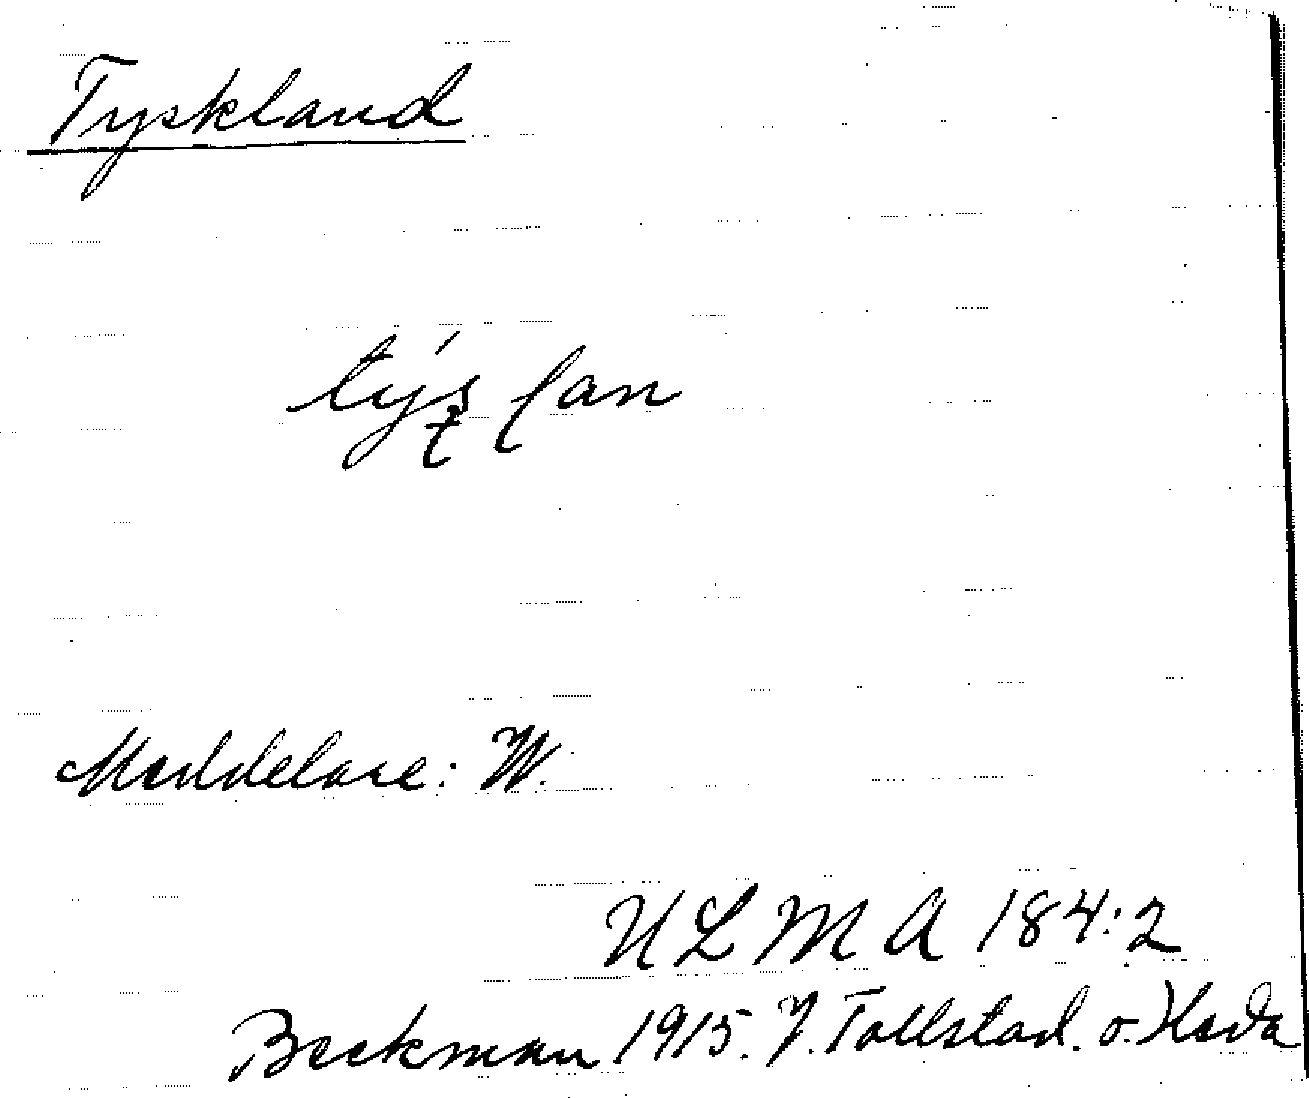 Tyskland
Meddelare: W.
ULMA 184:2
Beckman 1915. V. Tollstad. o. Heda